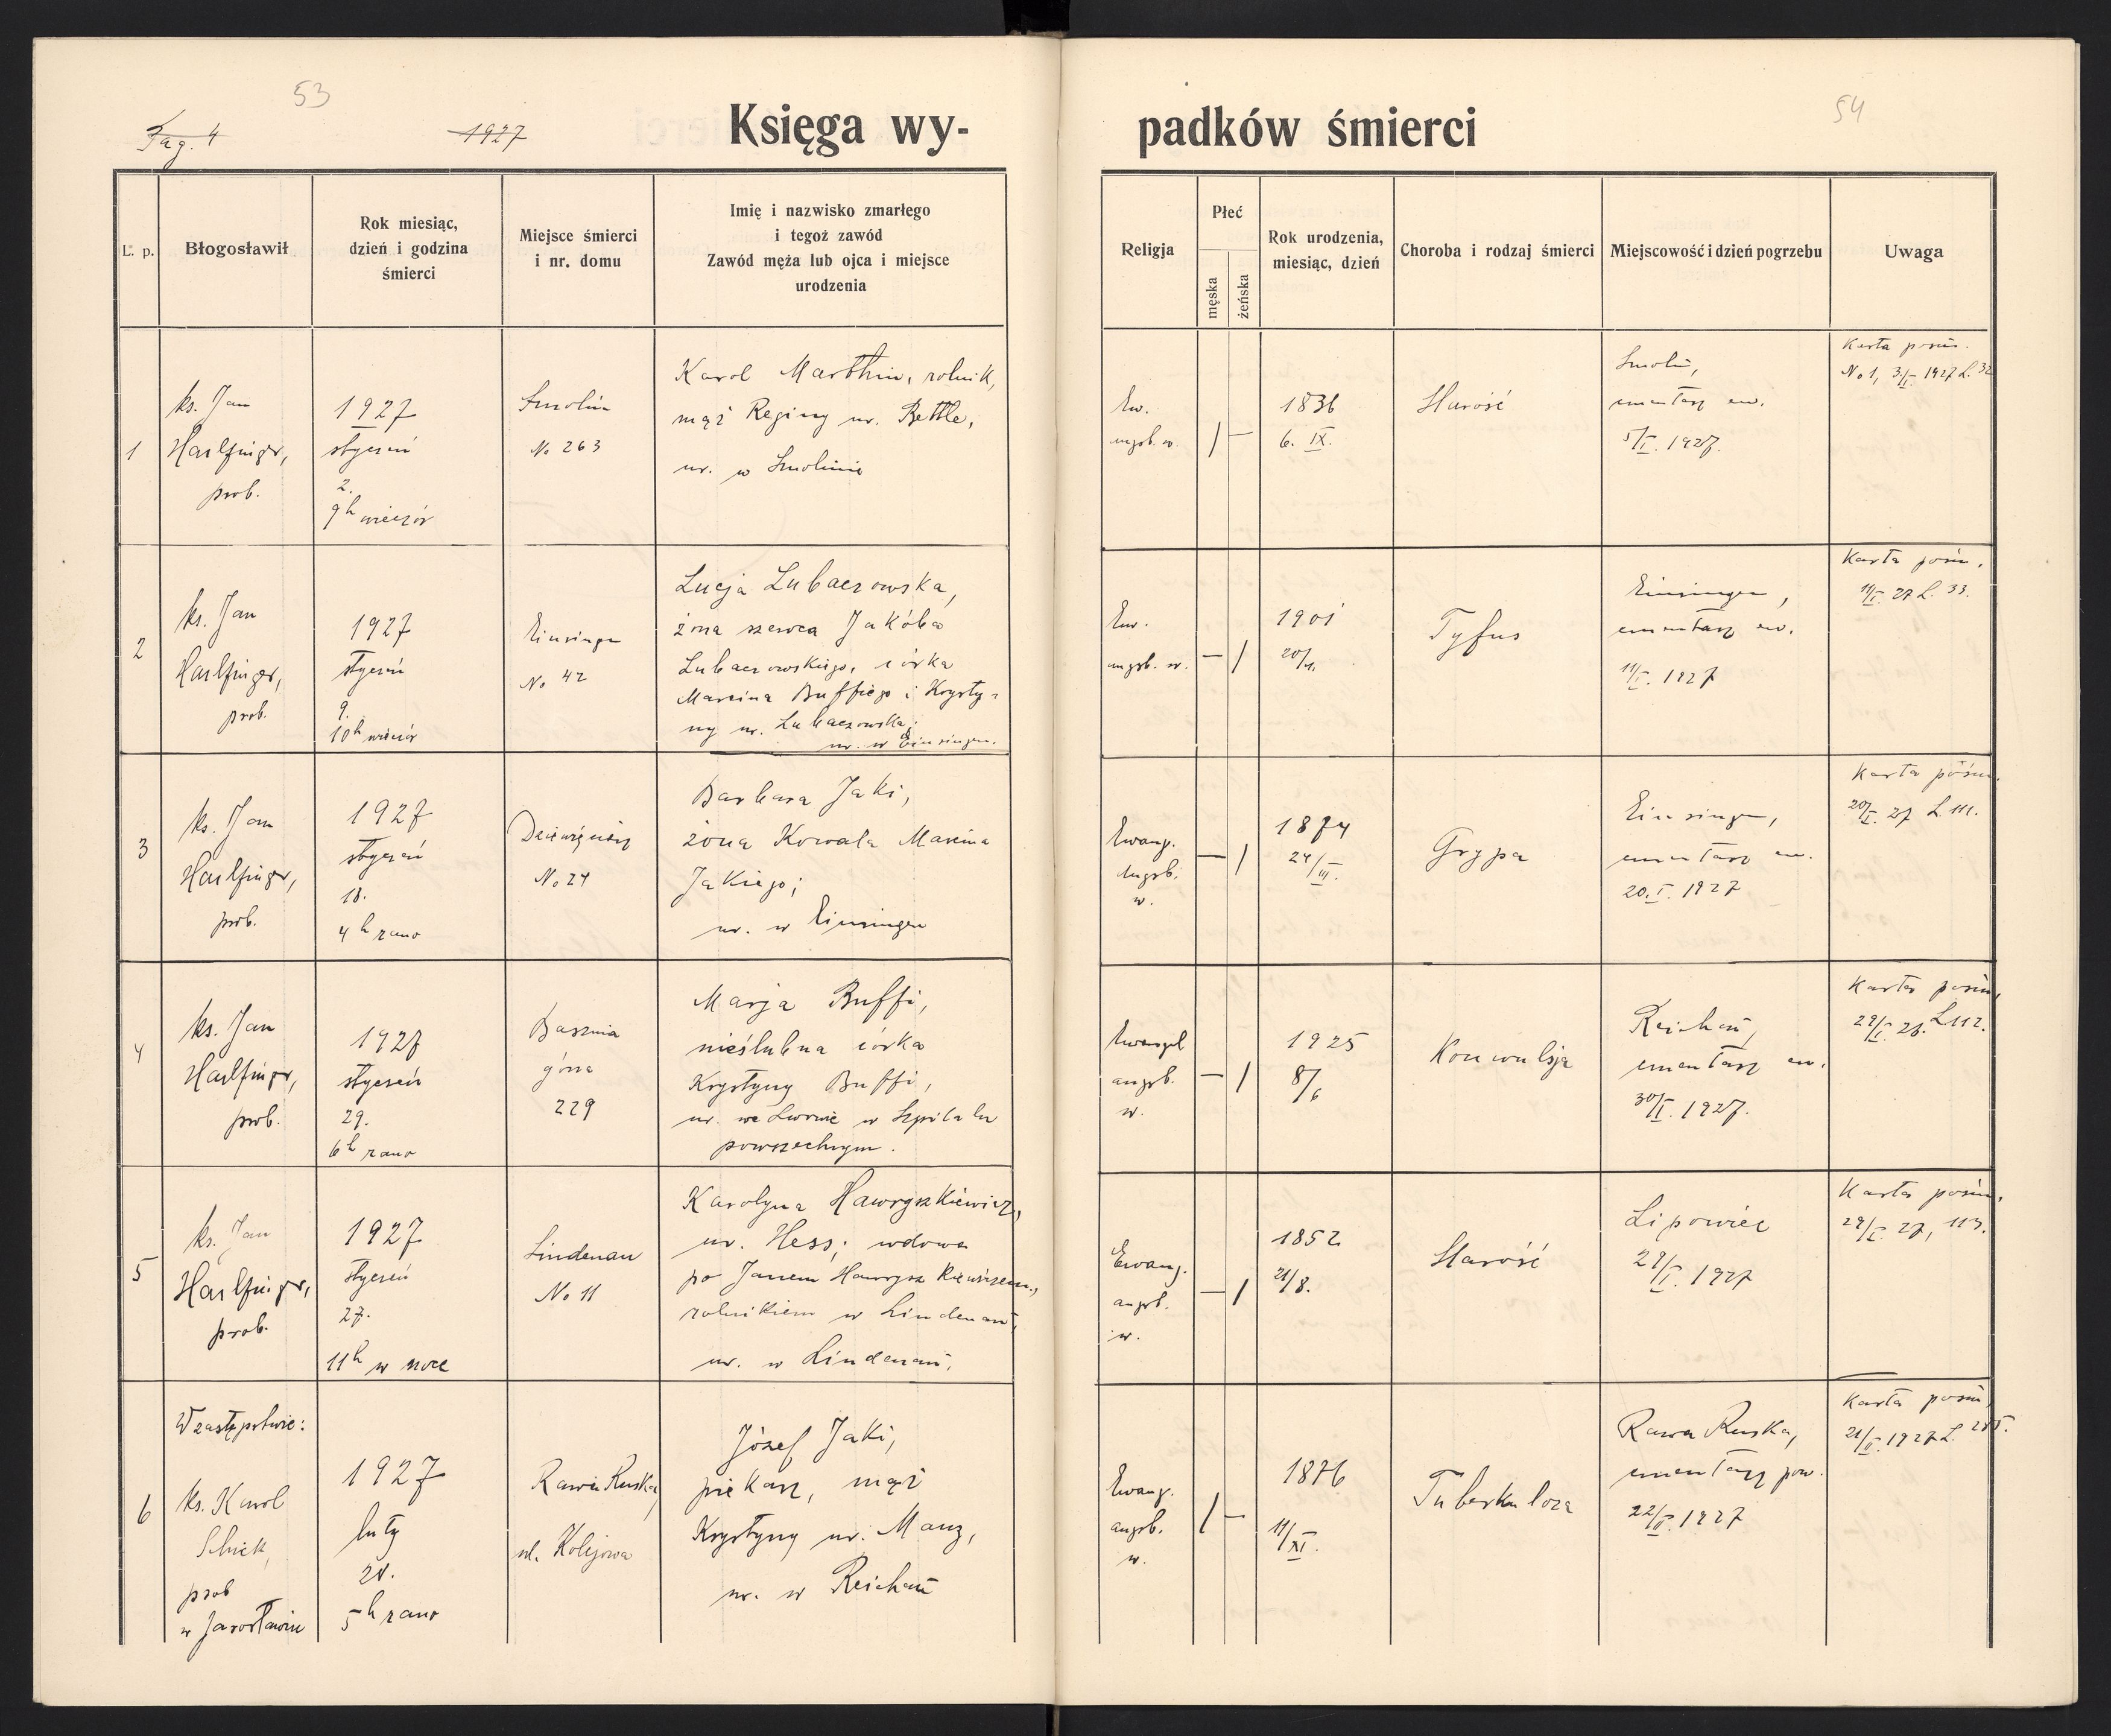 53
Pag. 4
1927
Księga wy-
L. p.
Błogosławił
Rok miesiąc,
dzień i godzina
śmierci
Miejsce śmierci
i nr. domu
Imię i nazwisko zmarłego
i tegoż zawód
Zawód męża lub ojca i miejsce
urodzenia
1
ks. Jan
Harlfinger,
prob.
1927
styczeń
2.
9h wieczór
Smolin
No 263
Karol Marthin, rolnik,
mąż Reginy ur. Bettle,
ur. w Smolinie
2
ks. Jan
Harlfinger,
prob.
1927
styczeń
9.
10h wieczór
Einsingen
No 42
Lucja Lubaczowska,
żona szewca Jakóba
Lubaczowskiego, córka
Marcina Buffiego i Krysty-
ny ur. Lubaczowska;
ur. w Einsingen.
3
ks. Jan
Harlfinger,
prob.
1927
styczeń
18.
4h rano
Dziewięcierz
No 24
Barbara Jaki,
żona Kowala Marcina
Jakiego;
ur. w Einsingen
4
ks. Jan
Harlfinger,
prob.
1927
styczeń
29.
6h rano
Basznia
górna
229
Marja Buffi,
nieślubna córka
Krystyny Buffi,
ur. we Lwowie w Szpitalu
powszechnym.
5
ks. Jan
Harlfinger,
prob.
1927
styczeń
27.
11h w nocy
Lindenau
No 11
Karolyna Hawryszkiewicz,
ur. Hess; wdowa
po Janem Hawryszkiewiczem,
rolnikiem w Lindenau,
ur. w Lindenau.
6
W zastępstwie:
ks. Karol
Schick,
prob
w Jarosławiu
1927
luty
20.
5h rano
Rawa Ruska,
ul. Kolejowa
Józef Jaki,
piekarz, mąż
Krystyny ur. Manz,
ur. w Reichau
54
padków śmierci
Religja
Płeć
męska
żeńska
Rok urodzenia,
miesiąc, dzień
Choroba i rodzaj śmierci
Miejscowość i dzień pogrzebu
Uwaga
Ew.
augsb. w.
1 —
1836
6. IX.
Starość
Smolin,
cmentarz ew.
5/I. 1927.
Karta pośm.
No 1, 3/I. 1927 L. 32
Ew.
augsb. w.
— 1
1901
Tyfus
Einsingen,
cmentarz ew.
11/I. 1927
Karta pośm.
11/I. 27 L. 33.
Ewang.
Augsb.
w.
— 1
1874
24/III.
Grypa
Einsingen,
cmentarz ew.
20.I. 1927
Karta pośm.
20/I. 27 L. 111.
Ewangel
augsb.
w.
— 1
1925
8/6
Konwulsja
Reichau,
cmentarz ew.
30/I. 1927.
Karta pośm.
L 112.
Ewang.
augsb.
w.
— 1
1852
21/8.
Starość
Lipowiec
29/I. 1927
Karta pośm.
29/I. 27, 113.
Ewang.
augsb.
w.
1 —
1876
11/XI.
Tuberkuloza
Rawa Ruska,
cmentarz pow.
22/II. 1927
Karta pośm.
21/II. 1927 L.